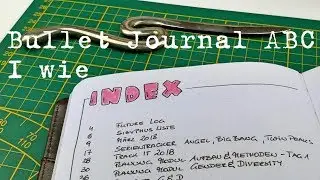 Bullet Journal ABC
I wie
INDEX
4 FUTURE LOG
6 SISYPHUS LISTE
8 MÄRZ 2018
9 SERIENTRACKER ANGEL, BIG BANG, TWIN PEAKS
17 TRACK IT 2018
18 PLANNING MODUL AUFBAU & METHODEN - TAG 1
30 PLANNING MODUL GENDER & DIVERSITY